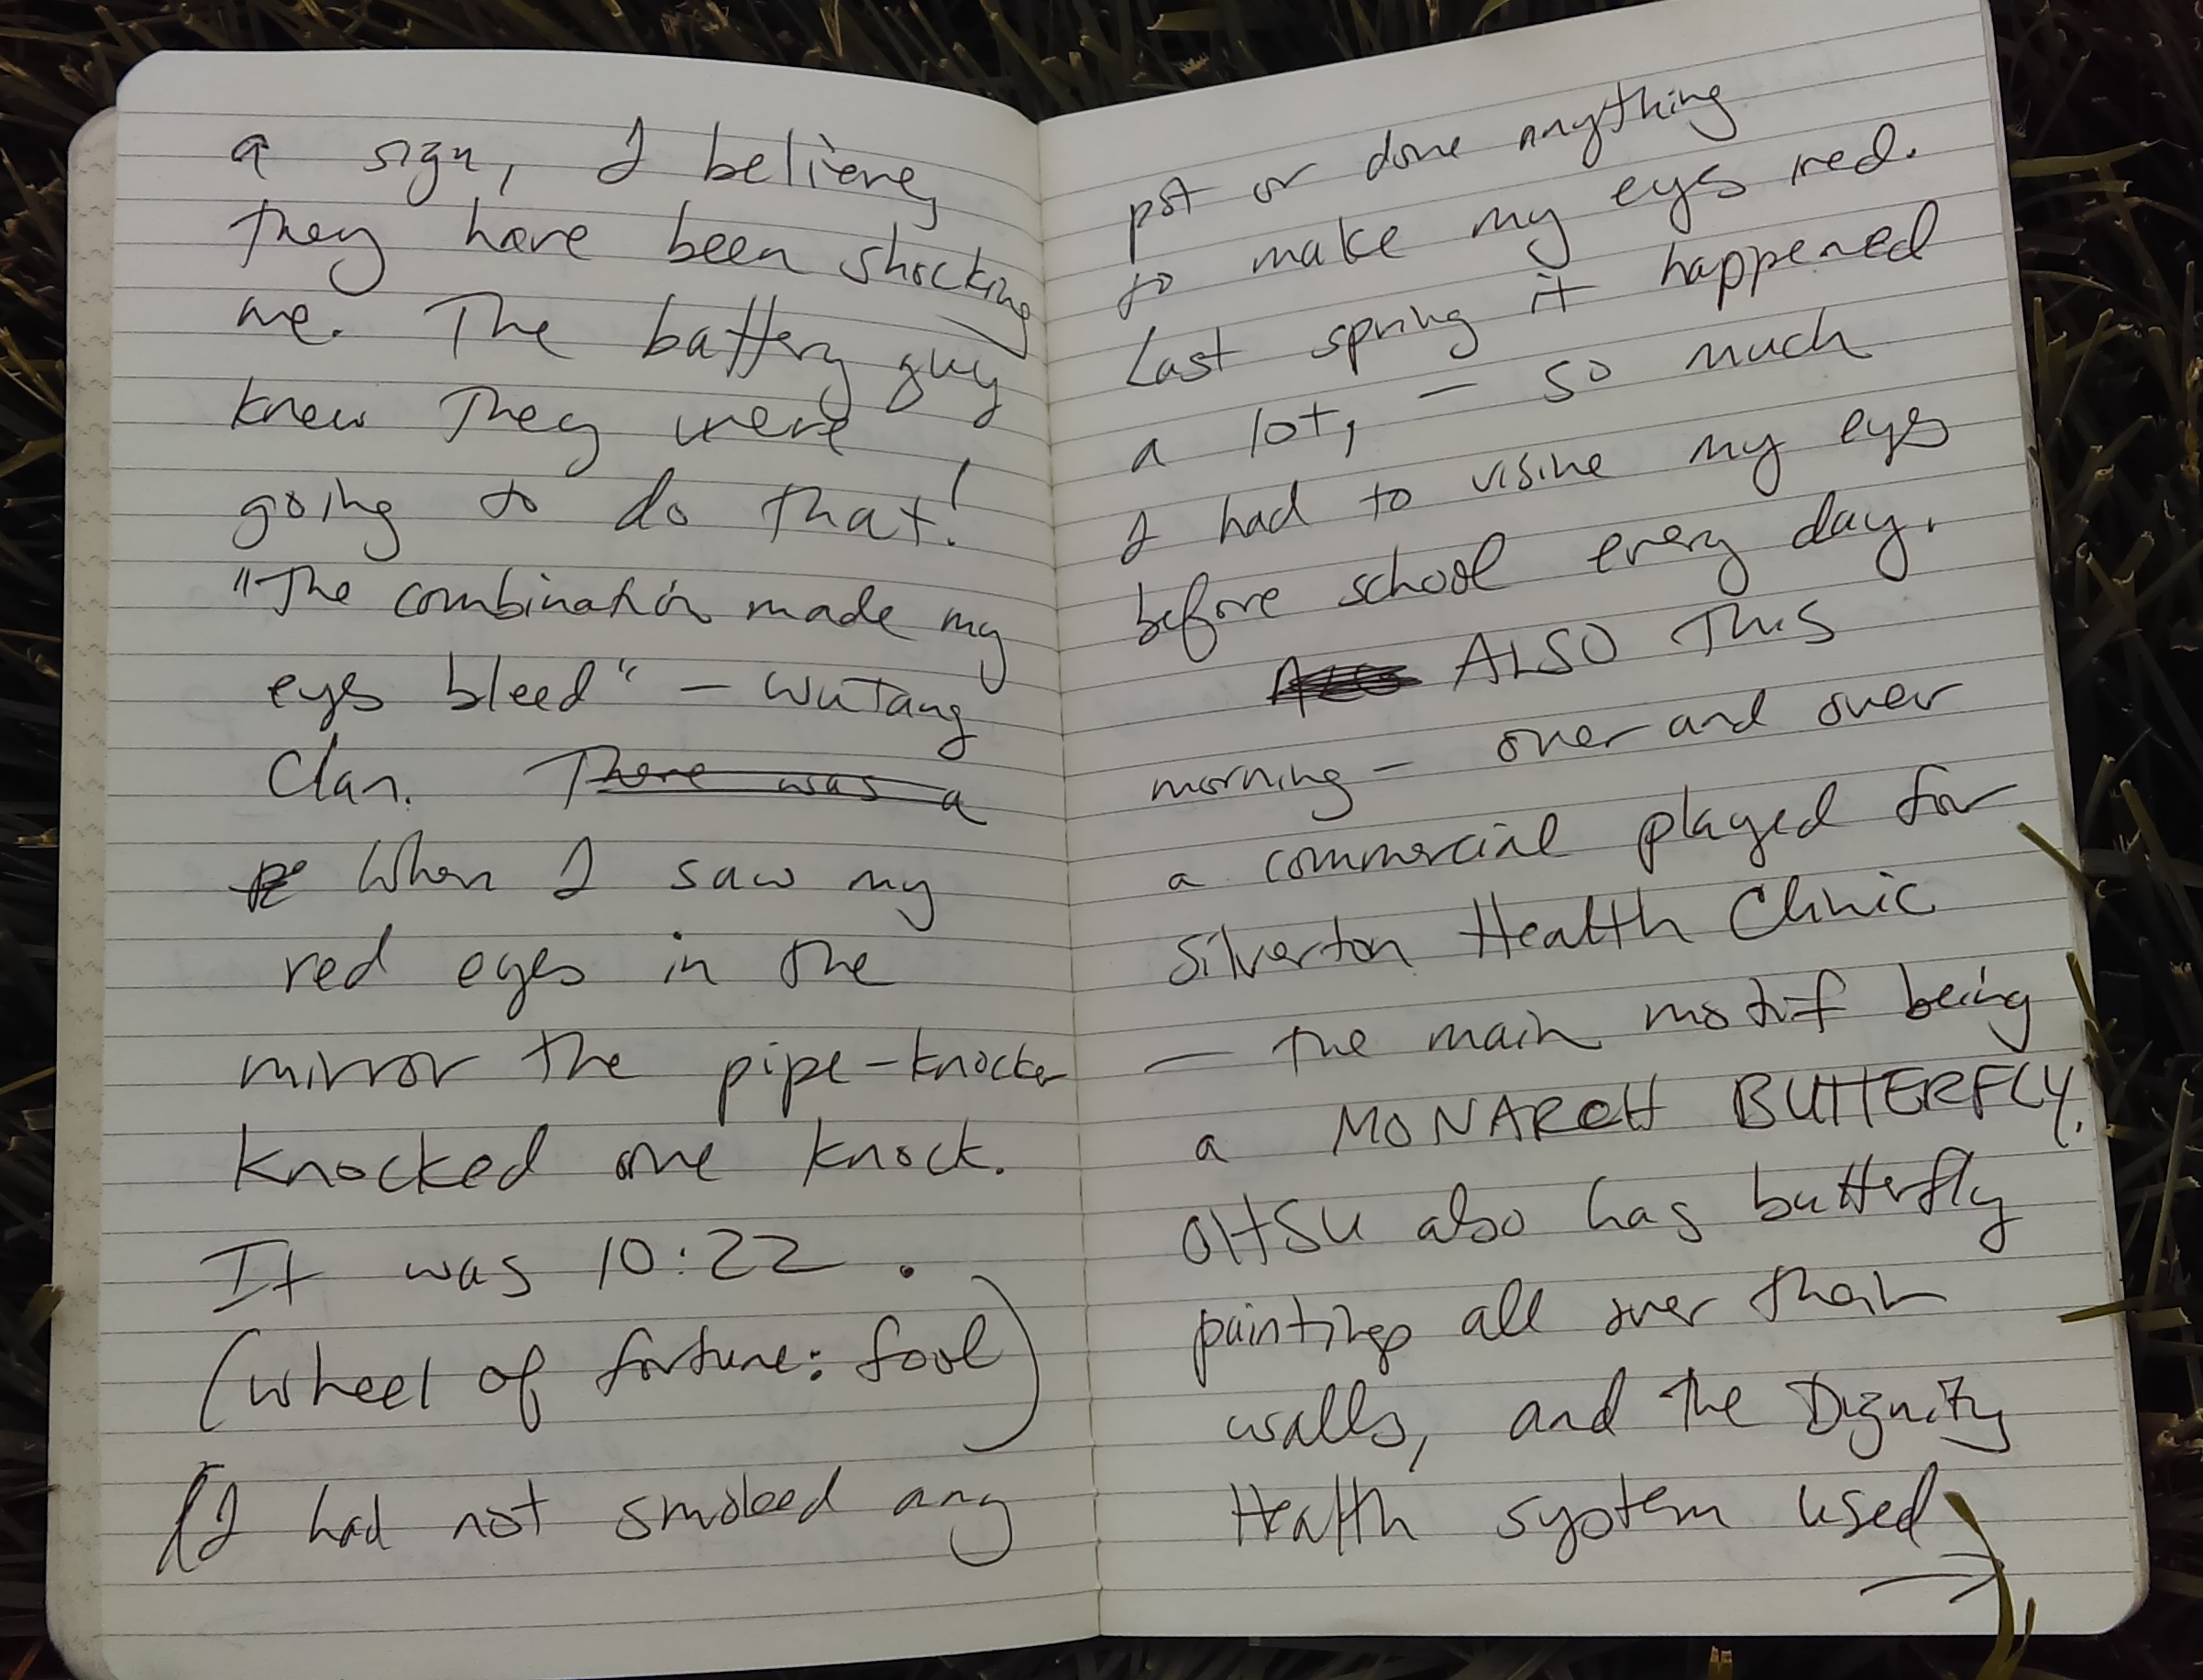 a sign, I believe
they have been shocking
me. The battery guy
knew they were
going to do that!
"The combination made my
eyes bleed" – WuTang
Clan. There was a
When I saw my
red eyes in the
mirror the pipe-knocker
knocked one knock.
It was 10:22.
(wheel of fortune: fool)
(I had not smoked any
pot or done anything
to make my eyes red.
Last spring it happened
a lot, – so much
I had to visine my eyes
before school every day.
ALSO This
morning – over and over
a commercial played for
Silverton Health Clinic
– the main motif being
a MONARCH BUTTERFLY.
OHSU also has butterfly
paintings all over their
walls, and the Dignity
Health system used
→